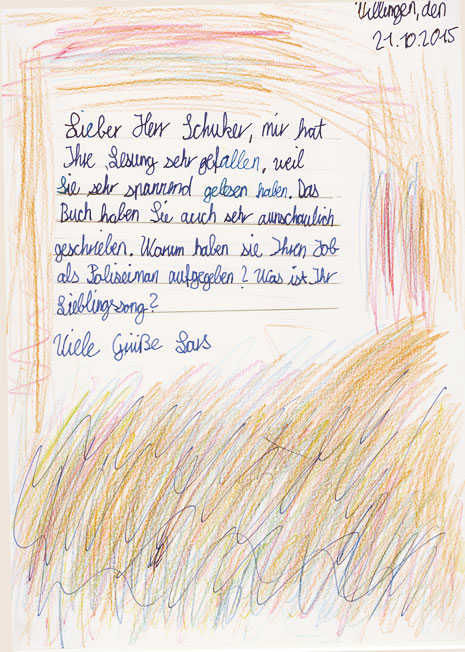 Villingen, den
21.10.2015
Lieber Herr Schuker, mir hat
Ihre Lesung sehr gefallen, weil
Sie sehr spannend gelesen haben. Das
Buch haben Sie auch sehr anschaulich
geschrieben. Warum haben sie Ihren Job
als Poliseiman aufgegeben? Was ist Ihr
Lieblingssong?
Viele Grüße Lars